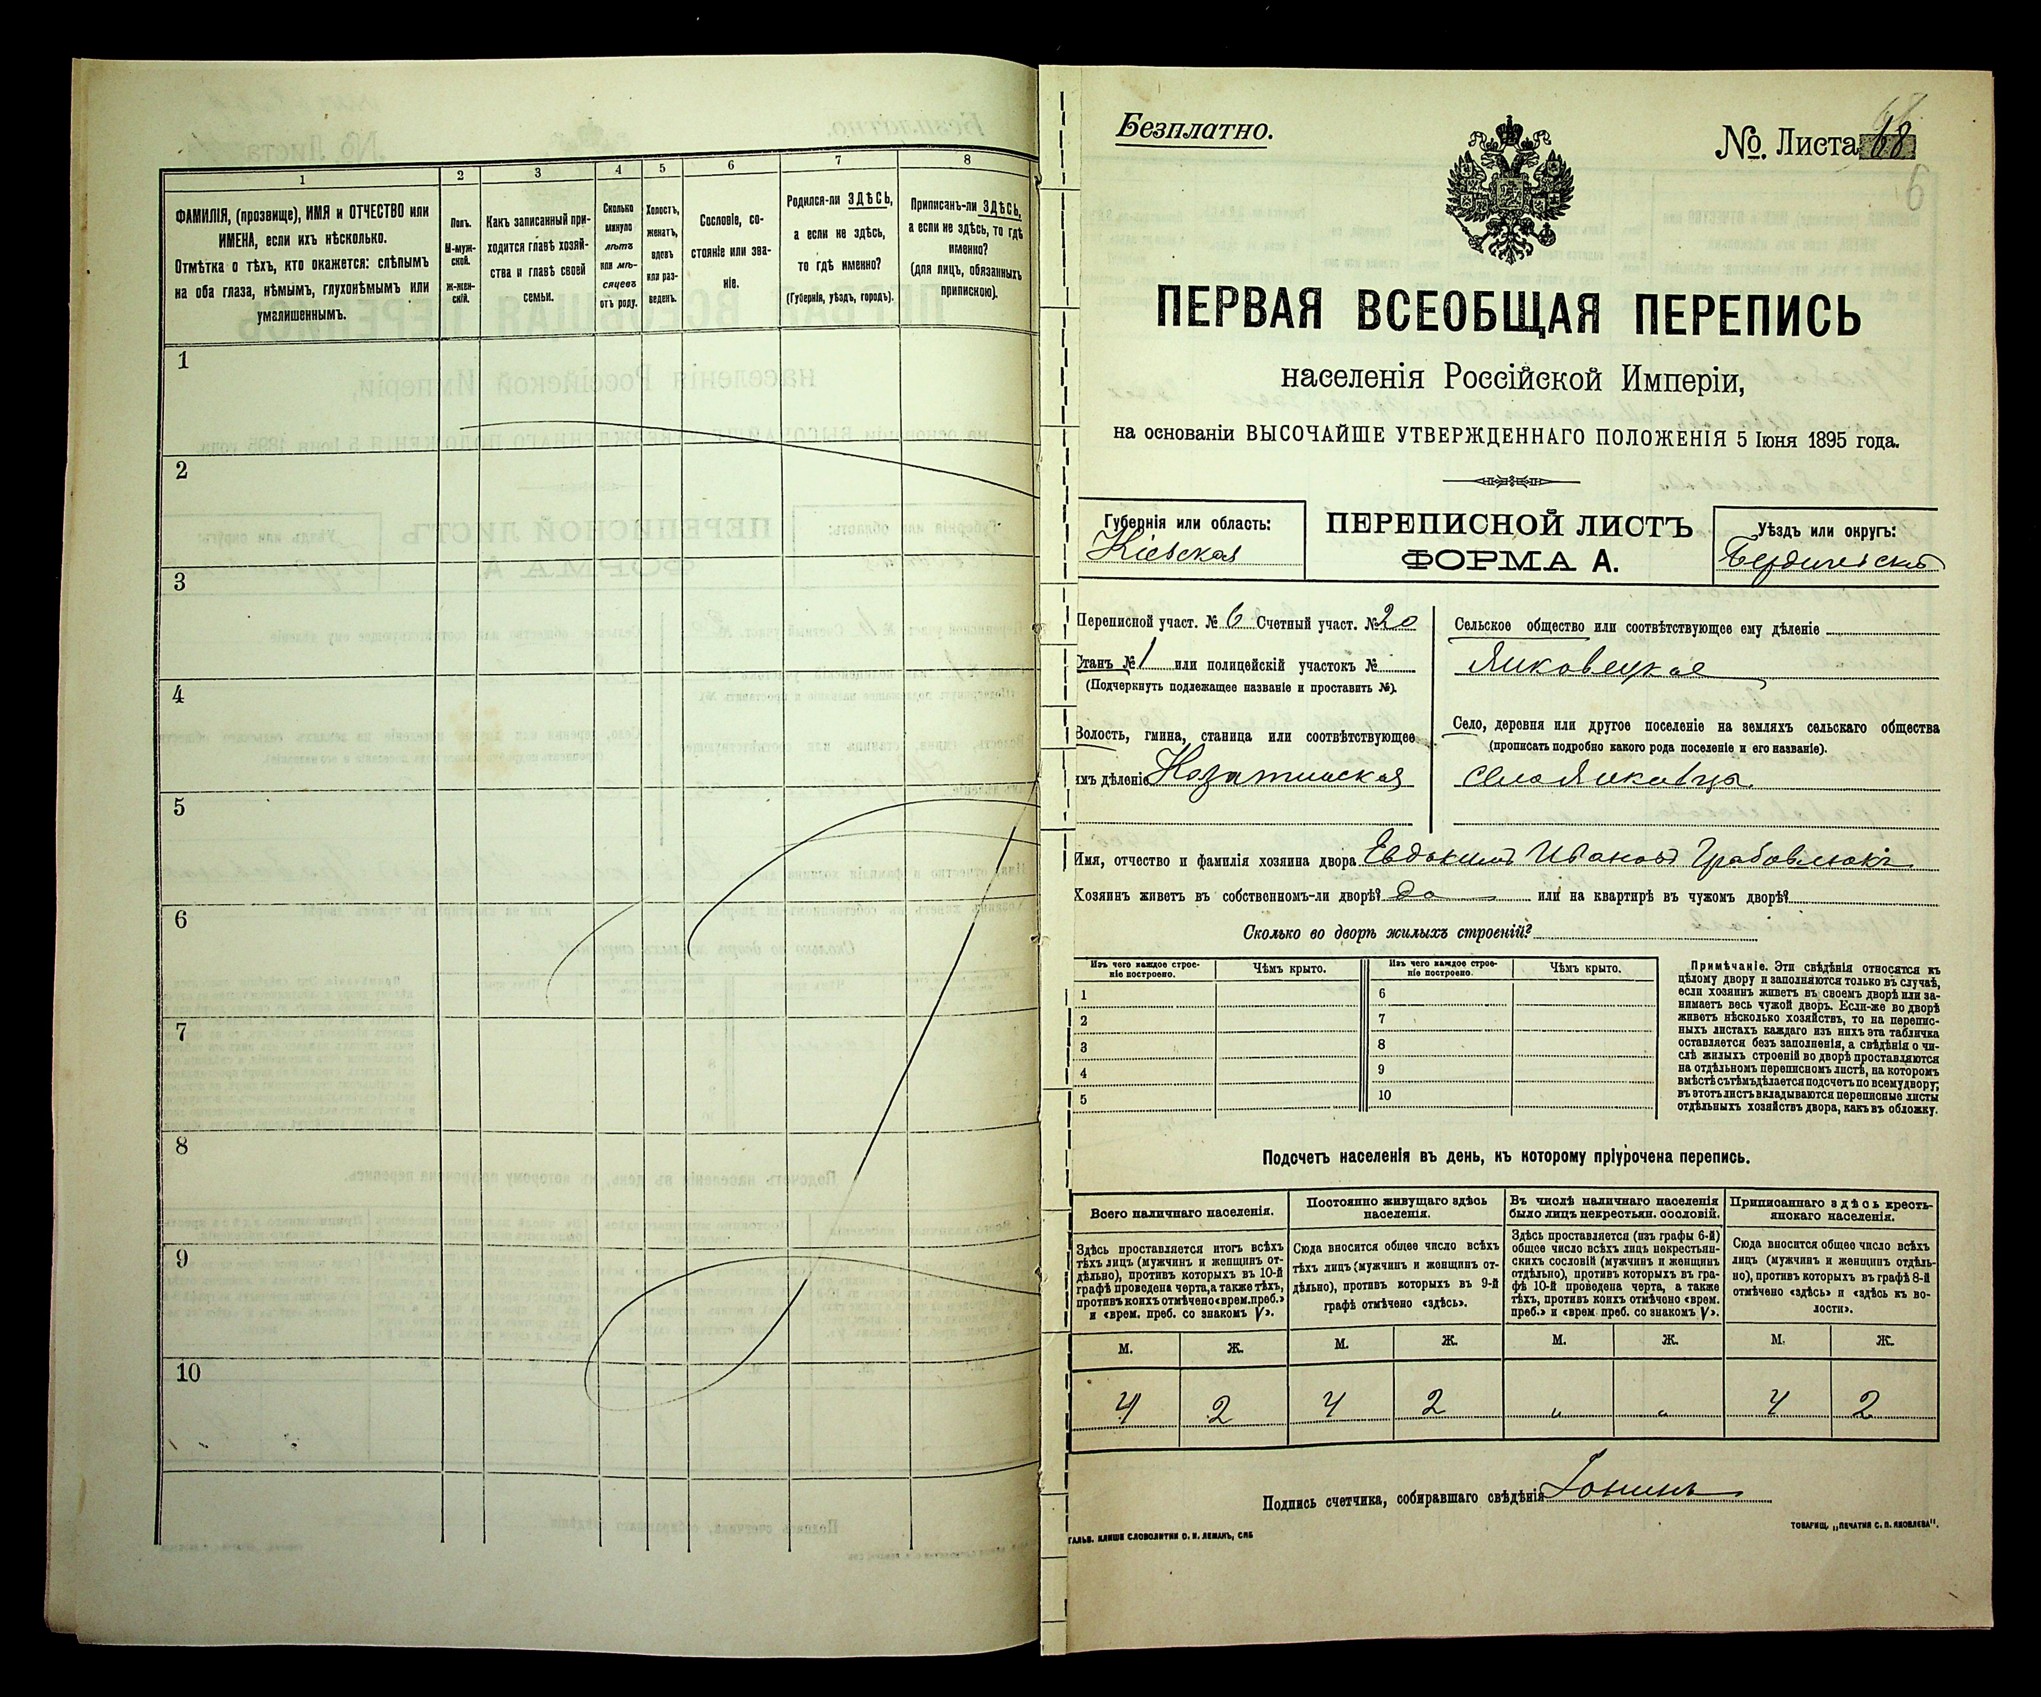 1
2
3
4
5
6
7
8
ФАМИЛІЯ, (прозвище), ИМЯ и ОТЧЕСТВО или
ИМЕНА, если ихъ нѣсколько.
Отмѣтка о тѣхъ, кто окажется: слѣпымъ
на оба глаза, нѣмымъ, глухонѣмымъ или
умалишеннымъ.
Полъ.
М-муж-
ской.
Ж-жен-
скій.
Какъ записанный при-
ходится главѣ хозяй-
ства и главѣ своей
семьи.
Сколько
минуло
лѣтъ
или мѣ-
сяцевъ
отъ роду.
Холостъ,
женатъ,
вдовъ
или раз-
веденъ.
Сословіе, со-
стояніе или зва-
ніе.
Родился-ли ЗДѢСЬ,
а если не здѣсь,
то гдѣ именно?
(Губернія, уѣздъ, городъ).
Приписанъ-ли ЗДѢСЬ,
а если не здѣсь, то гдѣ
именно?
(для лицъ, обязанныхъ
припискою).
1
2
3
4
5
6
7
8
9
10
Безплатно.
№. Листа 68
ПЕРВАЯ ВСЕОБЩАЯ ПЕРЕПИСЬ
населенія Россійской Имперіи,
на основаніи ВЫСОЧАЙШЕ УТВЕРЖДЕННАГО ПОЛОЖЕНІЯ 5 Іюня 1895 года.
Губернія или область:
Кіевская
ПЕРЕПИСНОЙ ЛИСТЪ
ФОРМА А.
Уѣздъ или округъ:
Бердичевскій
Переписной участ. № 6 Счетный участ. № 20
Станъ № 1 или полицейскій участокъ №
(Подчеркнуть подлежащее названіе и проставить №).
Волость, гмина, станица или соотвѣтствующее
имъ дѣленіе Козатинская
Сельское общество или соотвѣтствующее ему дѣленіе
Янковецкая
Село, деревня или другое поселеніе на земляхъ сельскаго общества
(прописать подробно какого рода поселеніе и его названіе).
село Янковцы
Имя, отчество и фамилія хозяина двора Евдокимъ Ивановъ Грабовлюкъ
Хозяинъ живетъ въ собственномъ-ли дворѣ? да или на квартирѣ въ чужомъ дворѣ?
Сколько во дворѣ жилыхъ строеній?
Изъ чего каждое строе-
ніе построено.
Чѣмъ крыто.
Изъ чего каждое строе-
ніе построено.
Чѣмъ крыто.
1
2
3
4
5
6
7
8
9
10
Примѣчаніе. Эти свѣдѣнія относятся къ
цѣлому двору и заполняются только въ случаѣ,
если хозяинъ живетъ въ своемъ дворѣ или за-
нимаетъ весь чужой дворъ. Если-же во дворѣ
живетъ нѣсколько хозяйствъ, то на перепис-
ныхъ листахъ каждаго изъ нихъ эта табличка
оставляется безъ заполненія, а свѣдѣнія о чи-
слѣ жилыхъ строеній во дворѣ проставляются
на отдѣльномъ переписномъ листѣ, на которомъ
вмѣстѣ съ тѣмъ дѣлается подсчетъ по всему двору;
въ этотъ листъ вкладываются переписные листы
отдѣльныхъ хозяйствъ двора, какъ въ обложку.
Подсчетъ населенія въ день, къ которому пріурочена перепись.
Всего наличнаго населенія.
Здѣсь проставляется итогъ всѣхъ
тѣхъ лицъ (мужчинъ и женщинъ от-
дѣльно), противъ которыхъ въ 10-й
графѣ проведена черта, а также тѣхъ,
противъ коихъ отмѣчено «врем. преб.»
и «врем. преб. со знакомъ V».
Постоянно живущаго здѣсь
населенія.
Сюда вносится общее число всѣхъ
тѣхъ лицъ (мужчинъ и женщинъ от-
дѣльно), противъ которыхъ въ 9-й
графѣ отмѣчено «здѣсь».
Въ числѣ наличнаго населенія
было лицъ некрестьян. сословій.
Здѣсь проставляется (изъ графы 6-й)
общее число всѣхъ лицъ некрестьян-
скихъ сословій (мужчинъ и женщинъ
отдѣльно), противъ которыхъ въ гра-
фѣ 10-й проведена черта, а также
тѣхъ, противъ коихъ отмѣчено «врем.
преб.» и «врем. преб. со знакомъ V».
Приписаннаго здѣсь кресть-
янскаго населенія.
Сюда вносится общее число всѣхъ
лицъ (мужчинъ и женщинъ отдѣль-
но), противъ которыхъ въ графѣ 8-й
отмѣчено «здѣсь» и «здѣсь въ во-
лости».
М. Ж. М. Ж. М. Ж. М. Ж.
4 2 4 2 „ „ 4 2
Подпись счетчика, собиравшаго свѣдѣнія
ГАЛЬВ. КЛИШЕ СЛОВОЛИТНИ О. И. ЛЕМАНЪ, СПБ
ТОВАРИЩ. „ПЕЧАТНЯ С. П. ЯКОВЛЕВА".